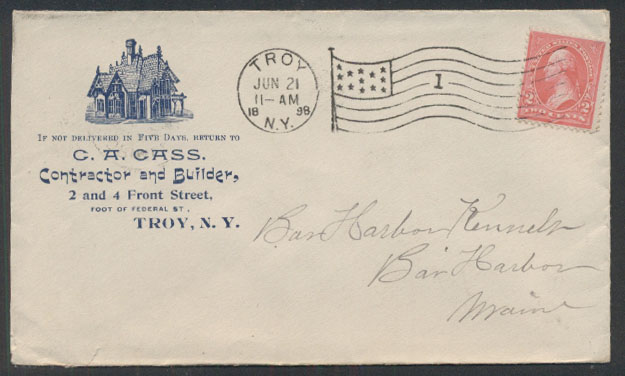 IF NOT DELIVERED IN FIVE DAYS, RETURN TO
C. A. CASS.
Contractor and Builder,
2 and 4 Front Street,
FOOT OF FEDERAL ST.,
TROY, N. Y.
TROY
JUN 21
11-AM
18 98
N.Y.
1
2 2
TWO CENTS
Bar Harbor Kennels
Bar Harbor
Maine